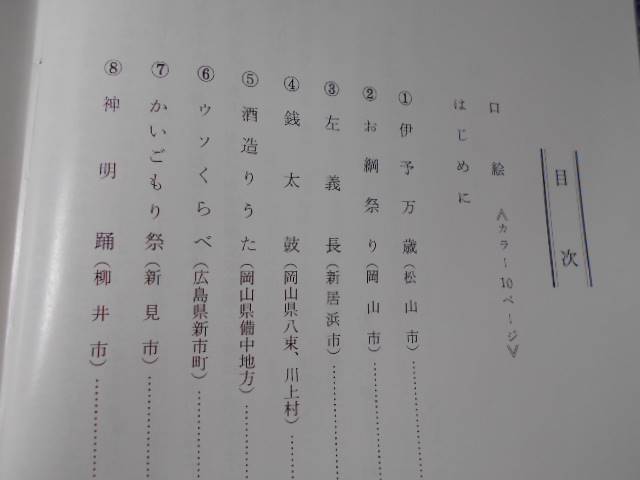 目次
口絵《カラー10ページ》
はじめに
①伊予万歳(松山市)…………
②お綱祭り(岡山市)…………
③左義長(新居浜市)…………
④銭太鼓(岡山県八束、川上村)……
⑤酒造りうた(岡山県備中地方)………
⑥ウソくらべ(広島県新市町)………
⑦かいごもり祭(新見市)…………
⑧神明踊(柳井市)…………